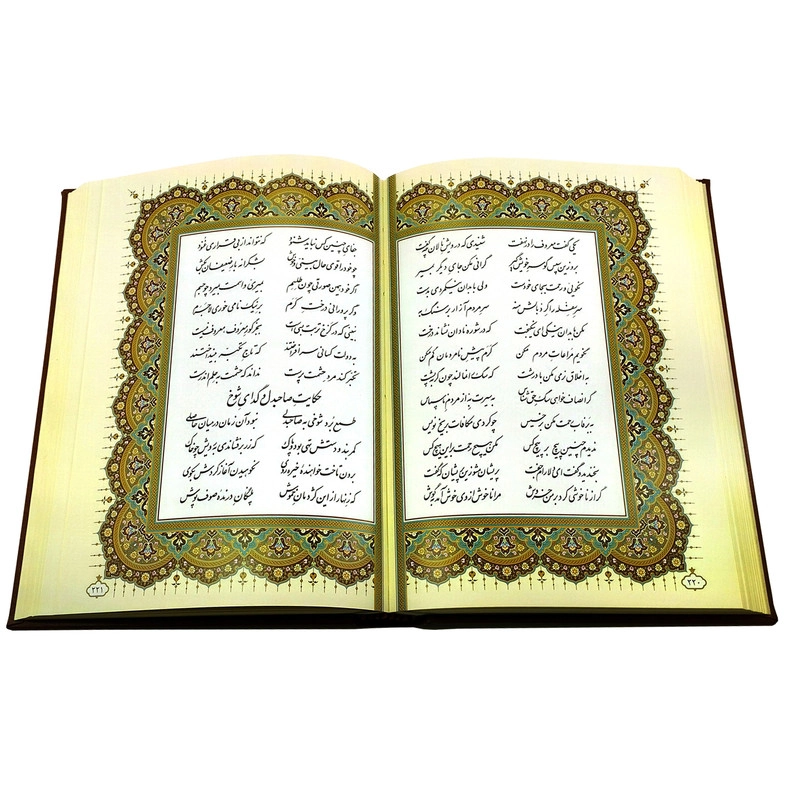 یکی گفت معروف را در نهفت شنیدی که درویش نالان چه گفت
برو زین سپس گو سر خویش گیر گرانی مکن جای دیگر بمیر
نکویی و رحمت بجای خودست ولی با بدان نیکمردی بدست
سر سفله را گرد بالش منه سر مردم آزار بر سنگ به
مکن با بدان نیکی ای نیکبخت که در شوره نادان نشاند درخت
نگویم مراعات مردم مکن کرم پیش نامردمان گم مکن
به اخلاق نرمی مکن با درشت که سگ را نمالند چون گربه پشت
گر انصاف خواهی سگ حق شناس به سیرت به از مردم ناسپاس
به برفاب رحمت مکن بر خسیس چو کردی مکافات بر یخ نویس
ندیدم چنین پیچ بر پیچ کس مکن هیچ رحمت بر این هیچ کس
بخندید و گفت ای دلارام جفت پریشان مشو زین پریشان که گفت
گر از ناخوشی کرد بر من خروش مرا ناخوش از وی خوش آمد بگوش
۲۲۰
جفای چنین کس نباید شنود که نتواند از بی قراری غنود
چو خود را قوی حال بینی و خوش بشکرانه بار ضعیفان بکش
اگر خود همین صورتی چون طلسم بمیری و اسمت بمیرد چو جسم
وگر پرورانی درخت کرم بر نیک نامی خوری لاجرم
نبینی که در کرخ تربت بسی است بجز گور معروف معروف نیست
به دولت کسانی سر افراختند که تاج تکبر بینداختند
تکبر کند مرد حشمت پرست نداند که حشمت به حلم اندرست
حکایت صاحبدل و گدای شوخ
طمع برد شوخی به صاحبدلی نبود آن زمان در میان حاصلی
کمربند و دستش تهی بود و پاک که زر برفشاندی به رویش چو خاک
برون تاخت خواهندهٔ خیره روی نکوهیدن آغاز کردش بکوی
که زنهار از این کژدمان خموش پلنگان درندهٔ صوف پوش
۲۲۱